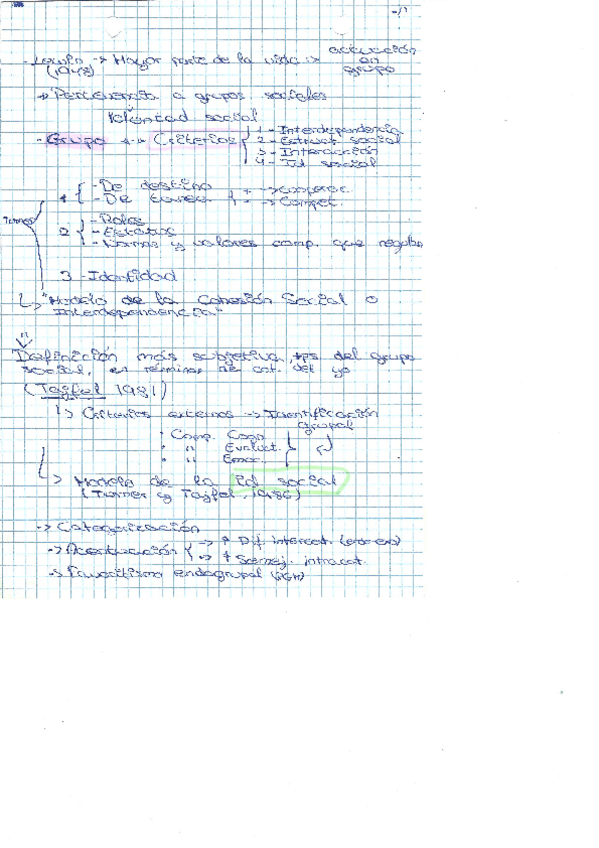 - Lewin → Mayor parte de la vida → actuación en grupo
(1948)
→ Pertenencia a grupos sociales
Identidad social
- Grupo ↔ Criterios { 1 - Interdependencia
2 - Estruct. social
3 - Interacción
4 - Id. social
1 { - De destino
- De tarea } + → cooperac.
- → Compet.
Turner
2 { - Roles
- Estatus
- Normas y valores comp. que regulan
3 - Identidad
↳ "Modelo de la Cohesión Social o
Interdependencia"
Definición más subjetiva, del grupo
social, en términos de cat. del yo
(Tajfel 1981)
↳ Criterios externos → Identificación grupal
· Comp. Cogn.
· " Evaluat.
· " Emoc.
↳ Modelo de la id. social
(Turner y Tajfel, 1986)
→ Categorización
→ Acentuación { → ↑ Dif. intercat.
→ ↑ Semej. intracat.
→ Favoritismo endogrupal